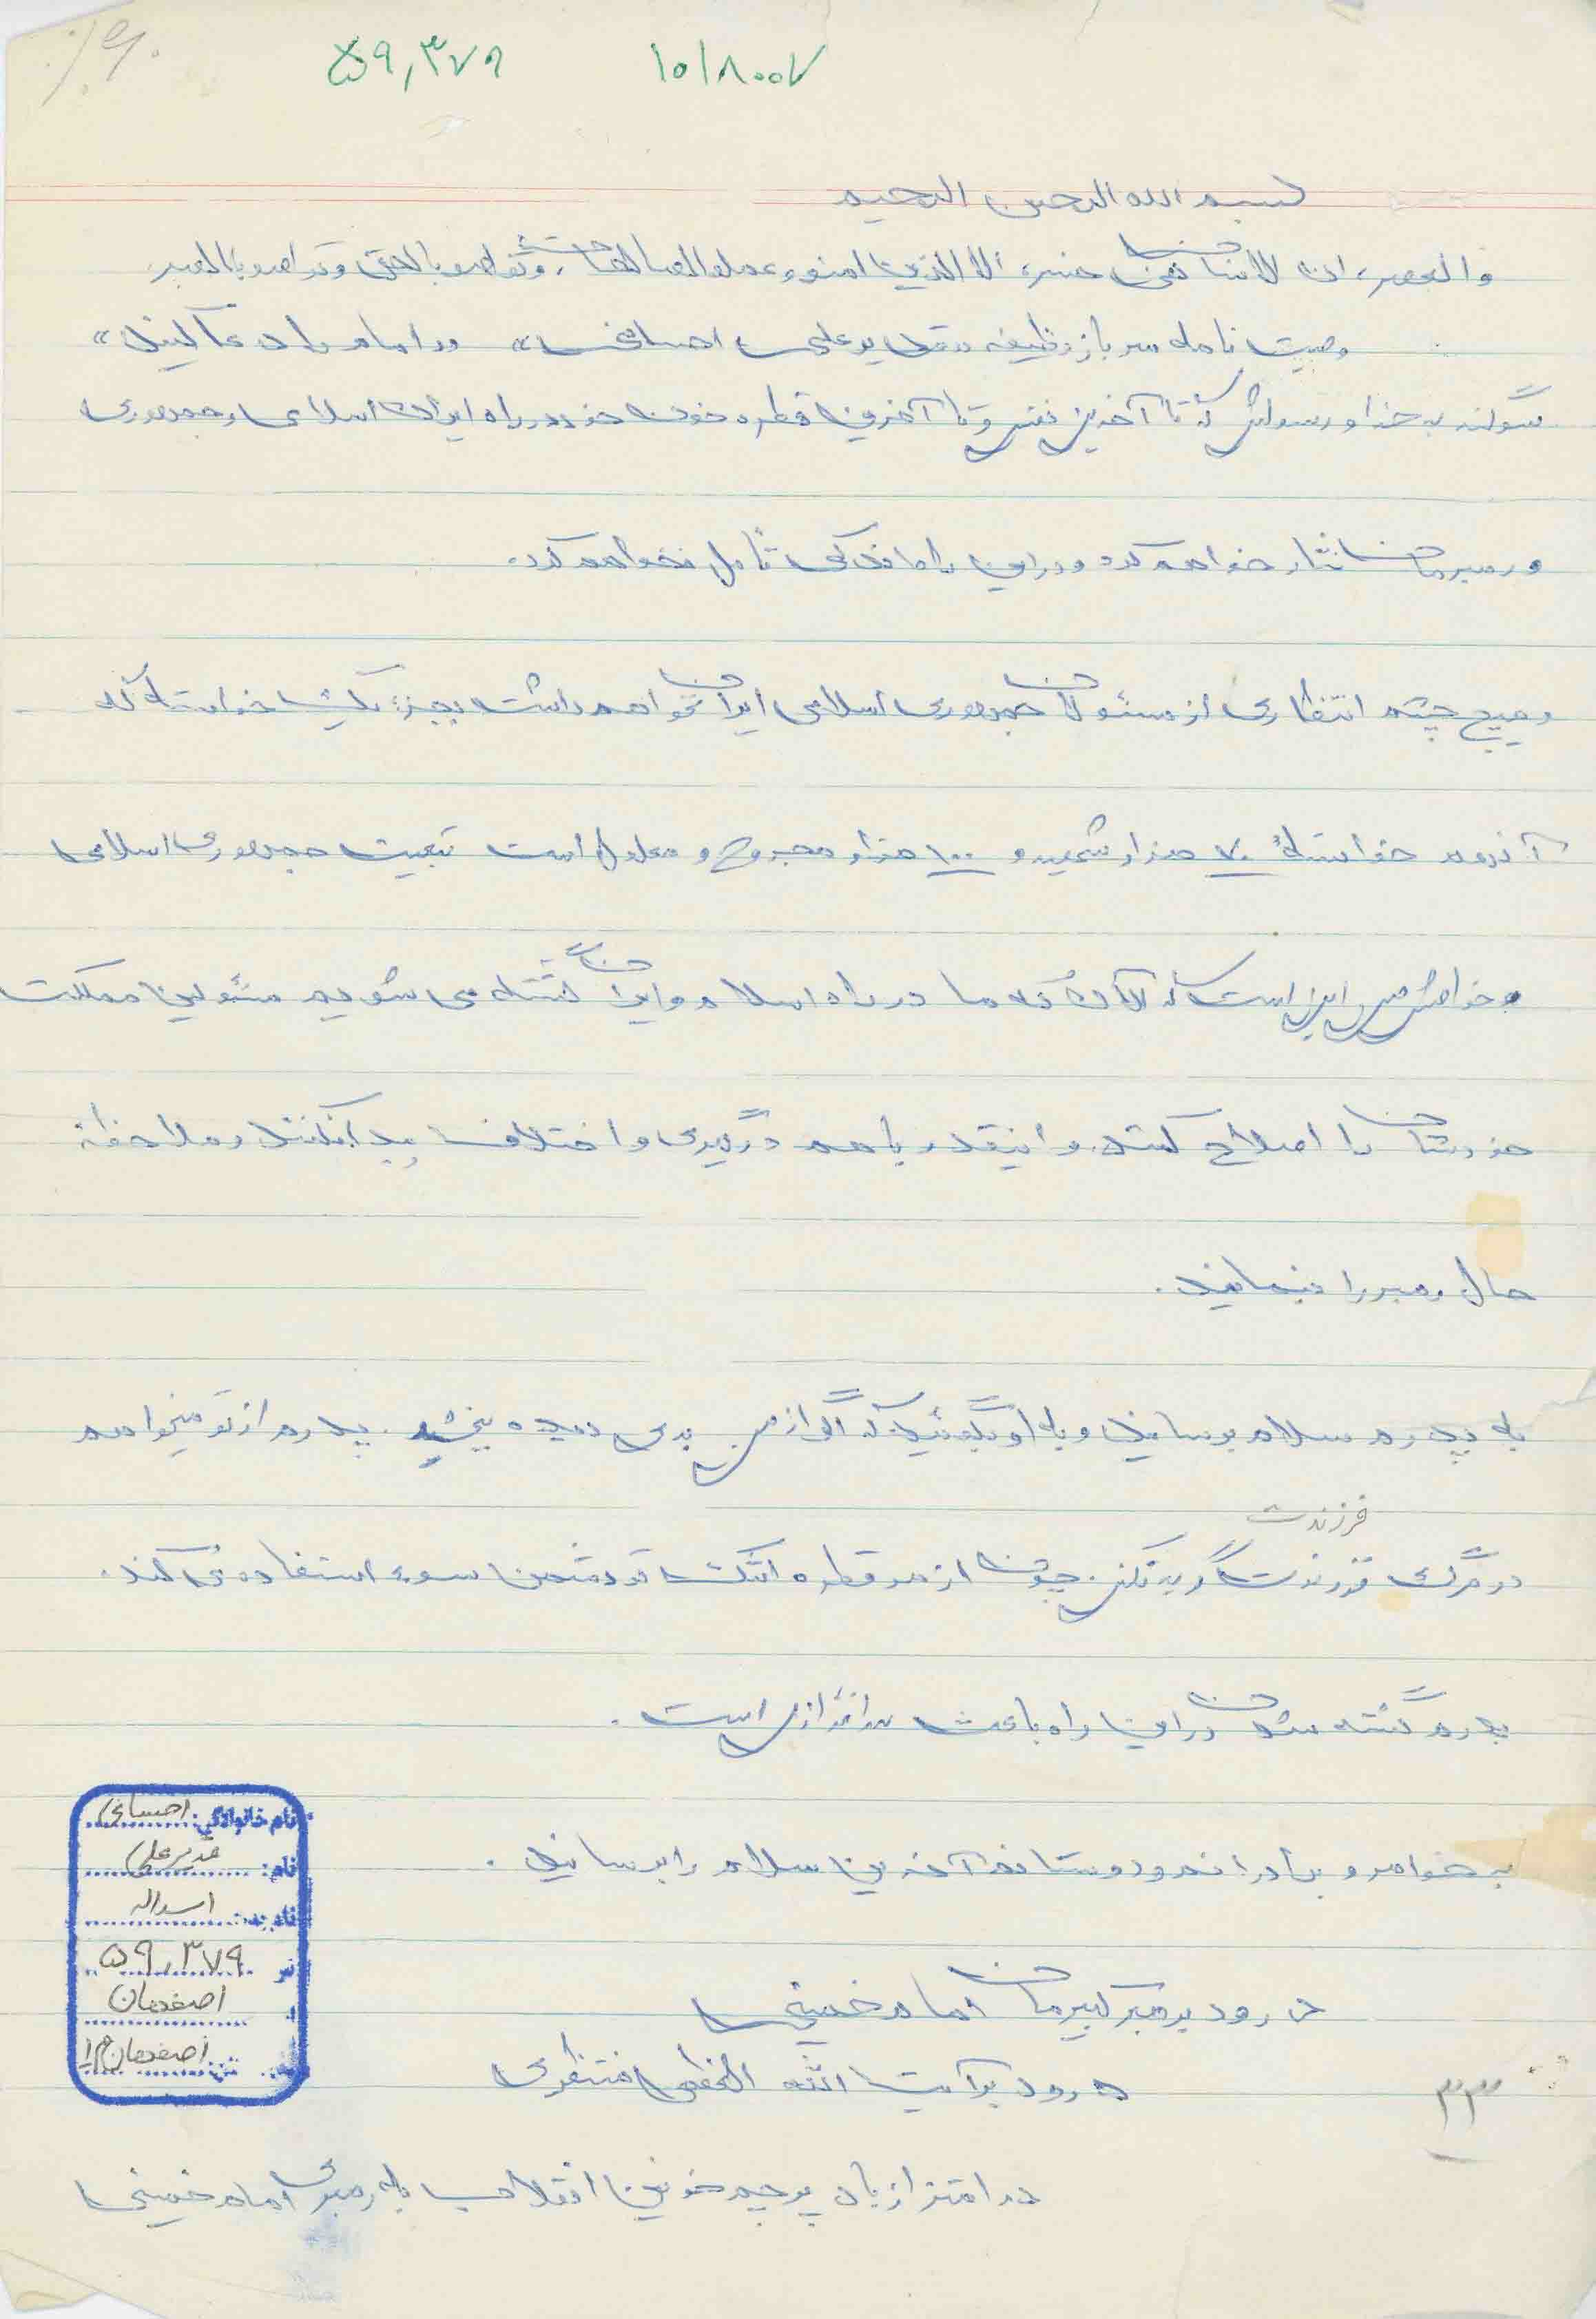 ۵۹,۳۷۹ ۱۰/۸۰۰۷
بسم الله الرحمن الرحیم
والعصر، ان الانسان لفی خسر، الا الذین امنو و عملو الصالحات، وتواصو بالحق وتواصو بالصبر
وصیت نامه سرباز وظیفه قدیر علی احسانی» «امام را دعا کنید»
سوگند به خدا و رسولش که تا آخرین نفس و تا آخرین قطره خون خود در راه ایران اسلامی و جمهوری
و رهبرمان نثار خواهم کرد و در این راه اندکی تأمل نخواهم کرد.
و هیچ چشم انتظاری از مسئولان جمهوری اسلامی ایران نخواهم داشت بجزء یک خواسته که
آنهم خواسته ۷۰ هزار شهید و ۱۰۰ هزار مجروح و معلول است تبعیت جمهوری اسلامی
و خواهش من این است که الآن که ما در راه اسلام و ایران کشته می شویم مسئولین مملکت
خودشان را اصلاح کنند و اینقدر باهم درگیری و اختلاف پیدا نکنند و ملاحظه
حال رهبر را بنمایند.
به پدرم سلام برسانید و به او بگوئید که اگر از من بدی دیده ببخشید. پدرم از تو میخواهم
فرزندت
در مرگ فرزندت گریه نکنی چون از هر قطره اشک تو دشمن سوء استفاده می کند.
پدرم کشته شدن در این راه باعث سرافرازی است.
به خواهر و برادرانم و دوستانم آخرین سلام را برسانید.
درود بر رهبر کبیرمان امام خمینی
درود بر آیت الله العظمی منتظری
در اهتزاز باد پرچم خونین انقلاب به رهبری امام خمینی
نام خانوادگی: احسانی
نام: قدیر علی
نام پدر: اسداله
۵۹,۳۷۹
اصفهان
اصفهان
۳۳